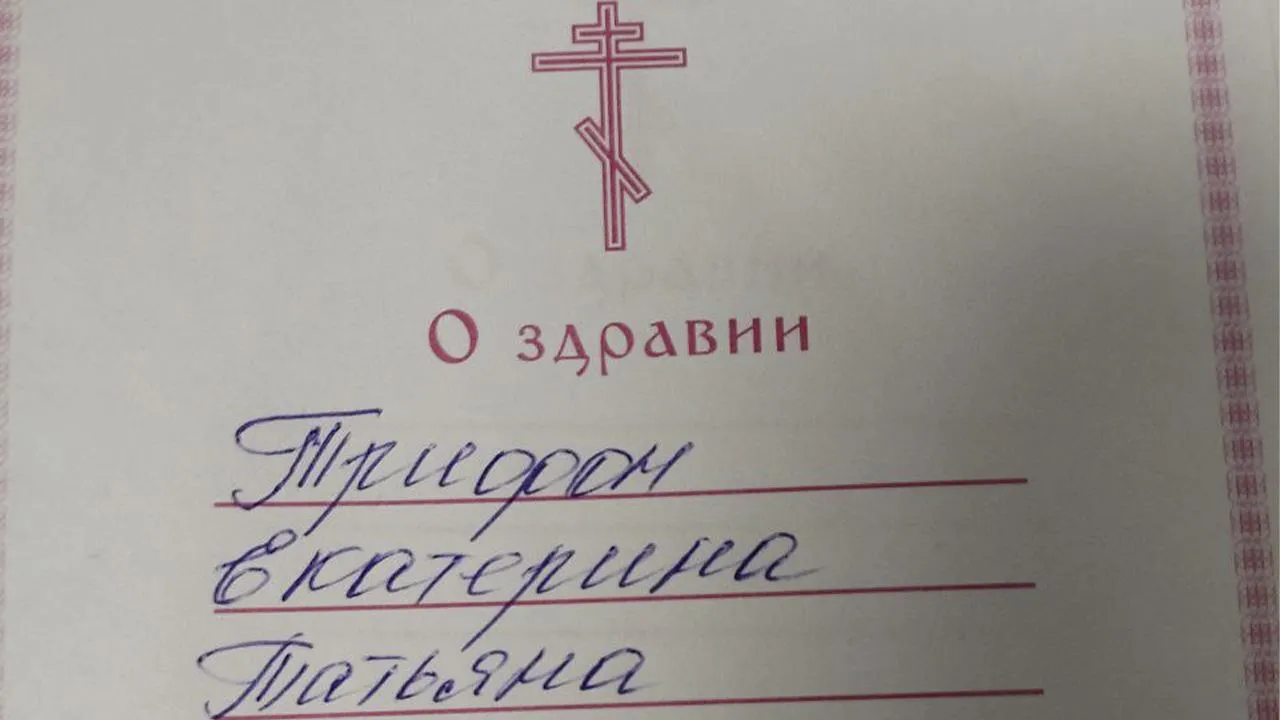 О здравии
Трифон
Екатерина
Татьяна